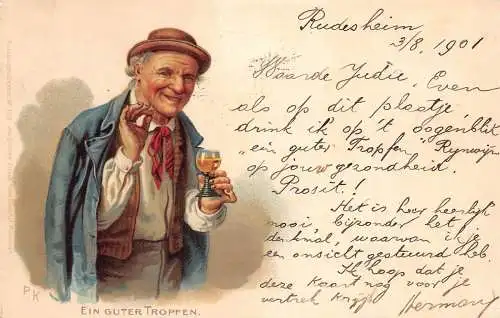 Rudesheim
3/8, 1901
Waarde Judie, Even
als op dit plaatje
drink ik op 't oogenblik
„ein guter Tropfen Rijnwijn
op jouw gezondheid.
Prosit!
Het is hier heerlijk
mooi, bijzonder het
denkmal, waarvan ik je
een ansicht gestuurd heb.
Ik hoop dat je
deze kaart nog voor je
vertrek krijgt
Hermann
PK
EIN GUTER TROPFEN.